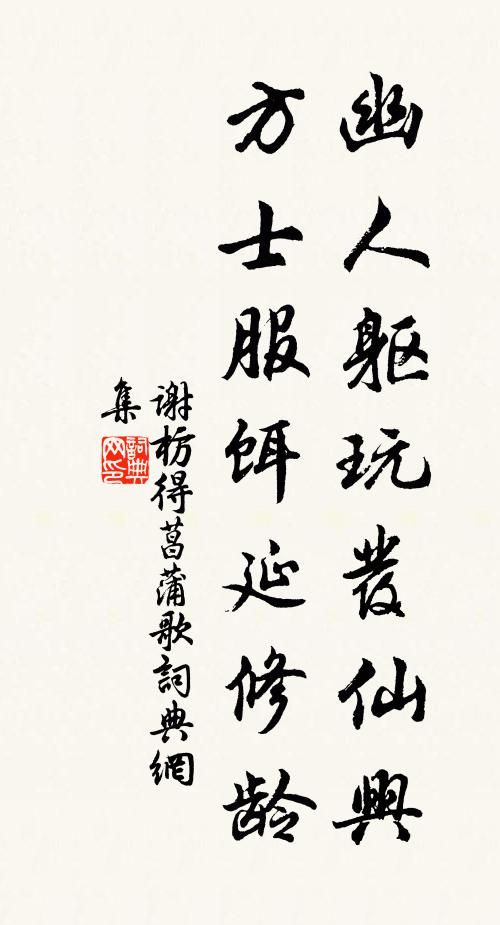 幽人躯玩發仙興
方士服餌延修龄
謝枋得菖蒲歌詞典網
集
詞典网印